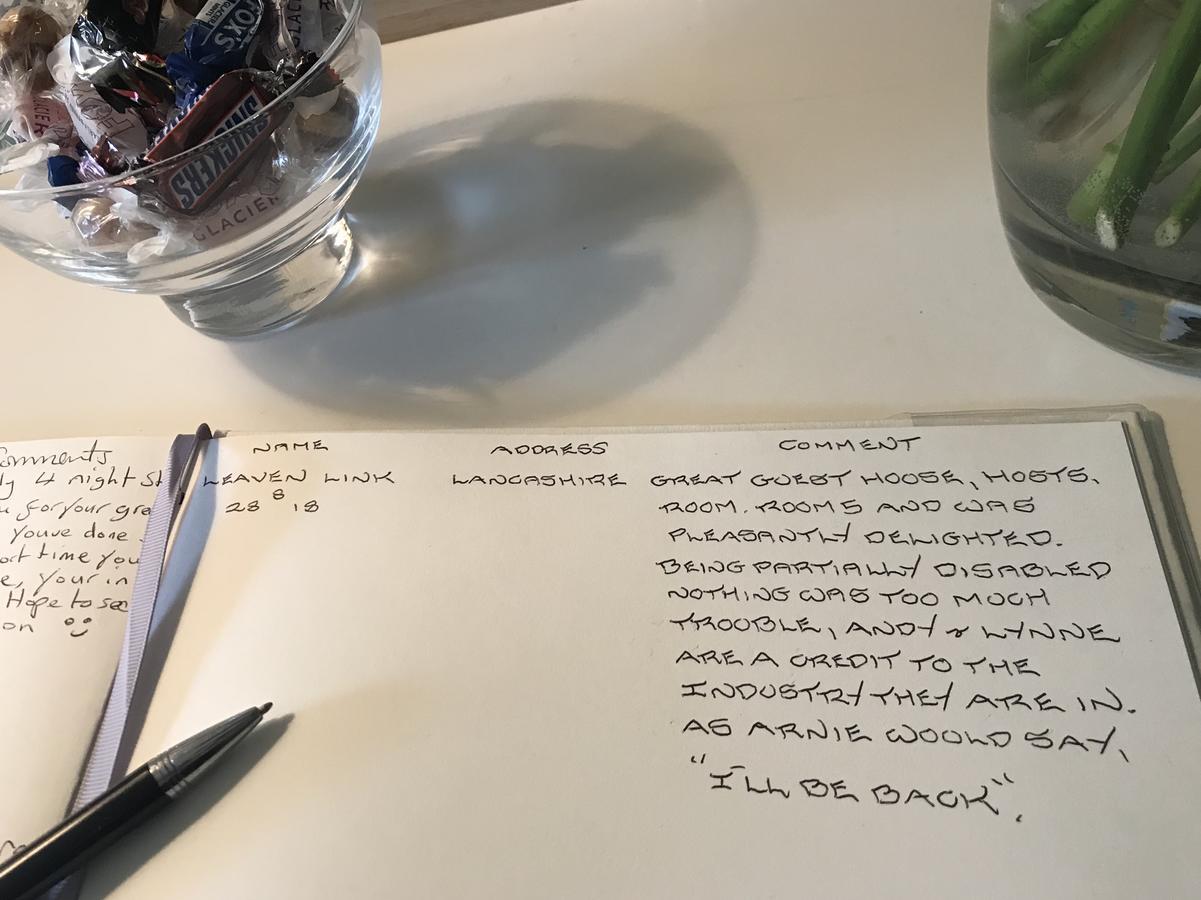 FOX'S
GLACIER
MINTS
SNICKERS
GLACIER
omments
ly 4 night st
u for your grea
youve done
ort time you
e, your in
Hope to see
on
NAME ADDRESS COMMENT
LEAVEN LINK LANCASHIRE GREAT GUEST HOUSE, HOSTS,
28 8 18 ROOM. ROOMS AND WAS
PLEASANTLY DELIGHTED.
BEING PARTIALLY DISABLED
NOTHING WAS TOO MUCH
TROUBLE, ANDY & LYNNE
ARE A CREDIT TO THE
INDUSTRY THEY ARE IN.
AS ARNIE WOULD SAY,
"I'LL BE BACK".